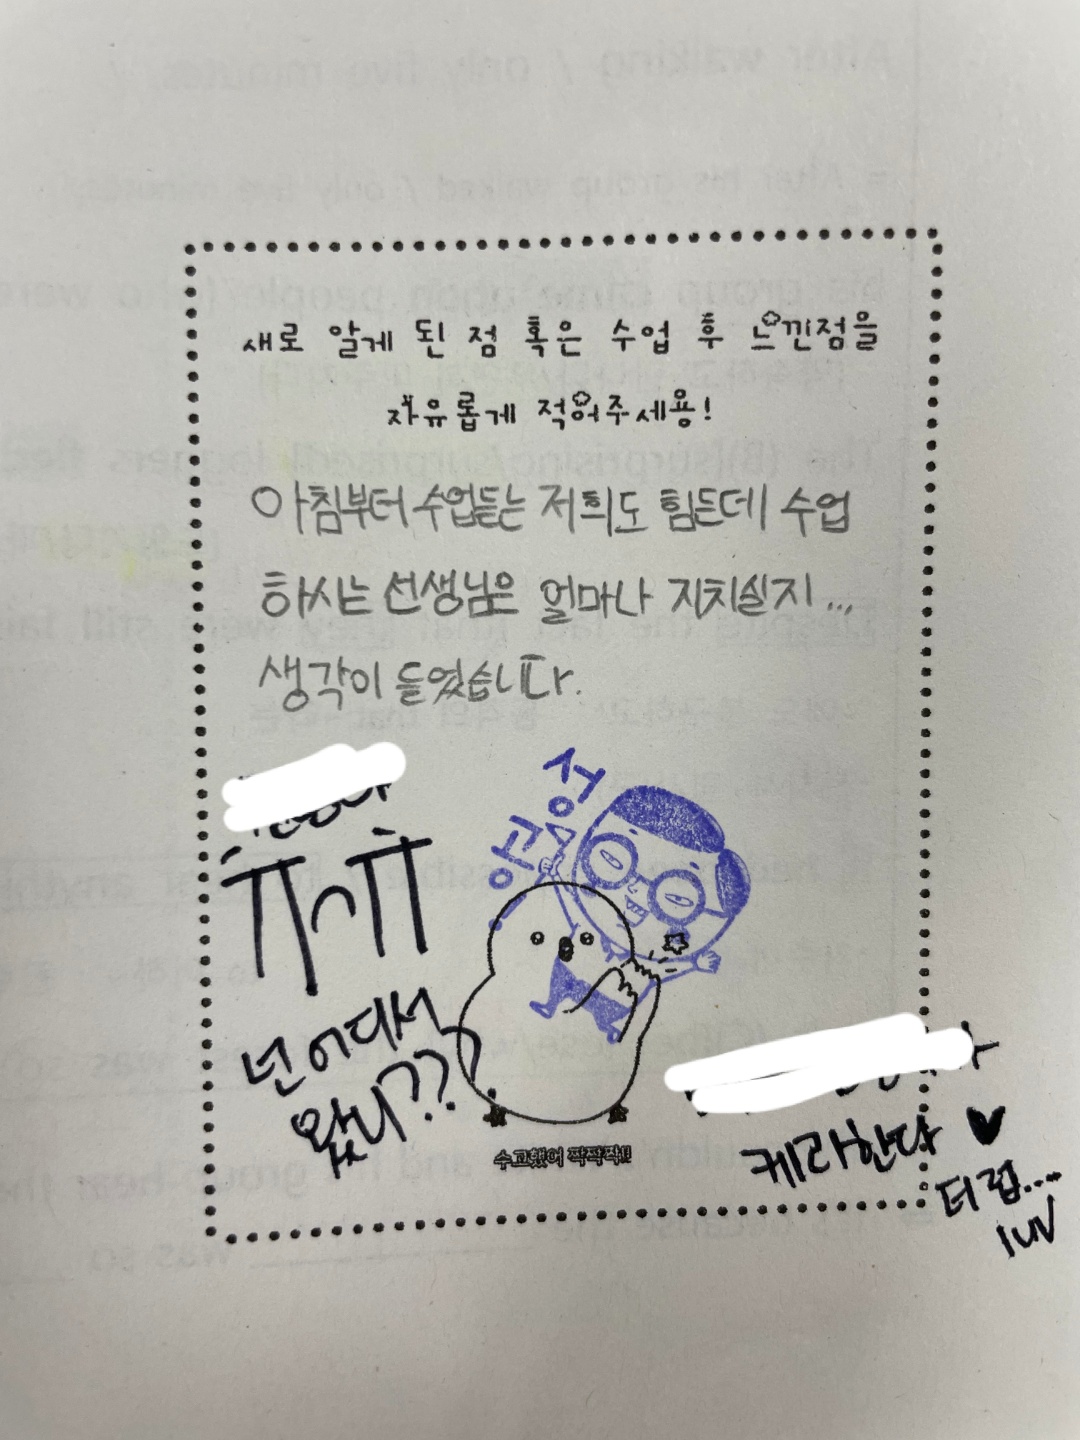 새로 알게 된 점 혹은 수업 후 느낀점을
자유롭게 적어주세용!
아침부터 수업듣는 저희도 힘든데 수업
하시는 선생님은 얼마나 지치실지...
생각이 들었습니다.
성공
ㅠㅠ
넌 어디서
왔니???
수고했어 짝짝짝!!
케라한다 ♥
더럽....
luv